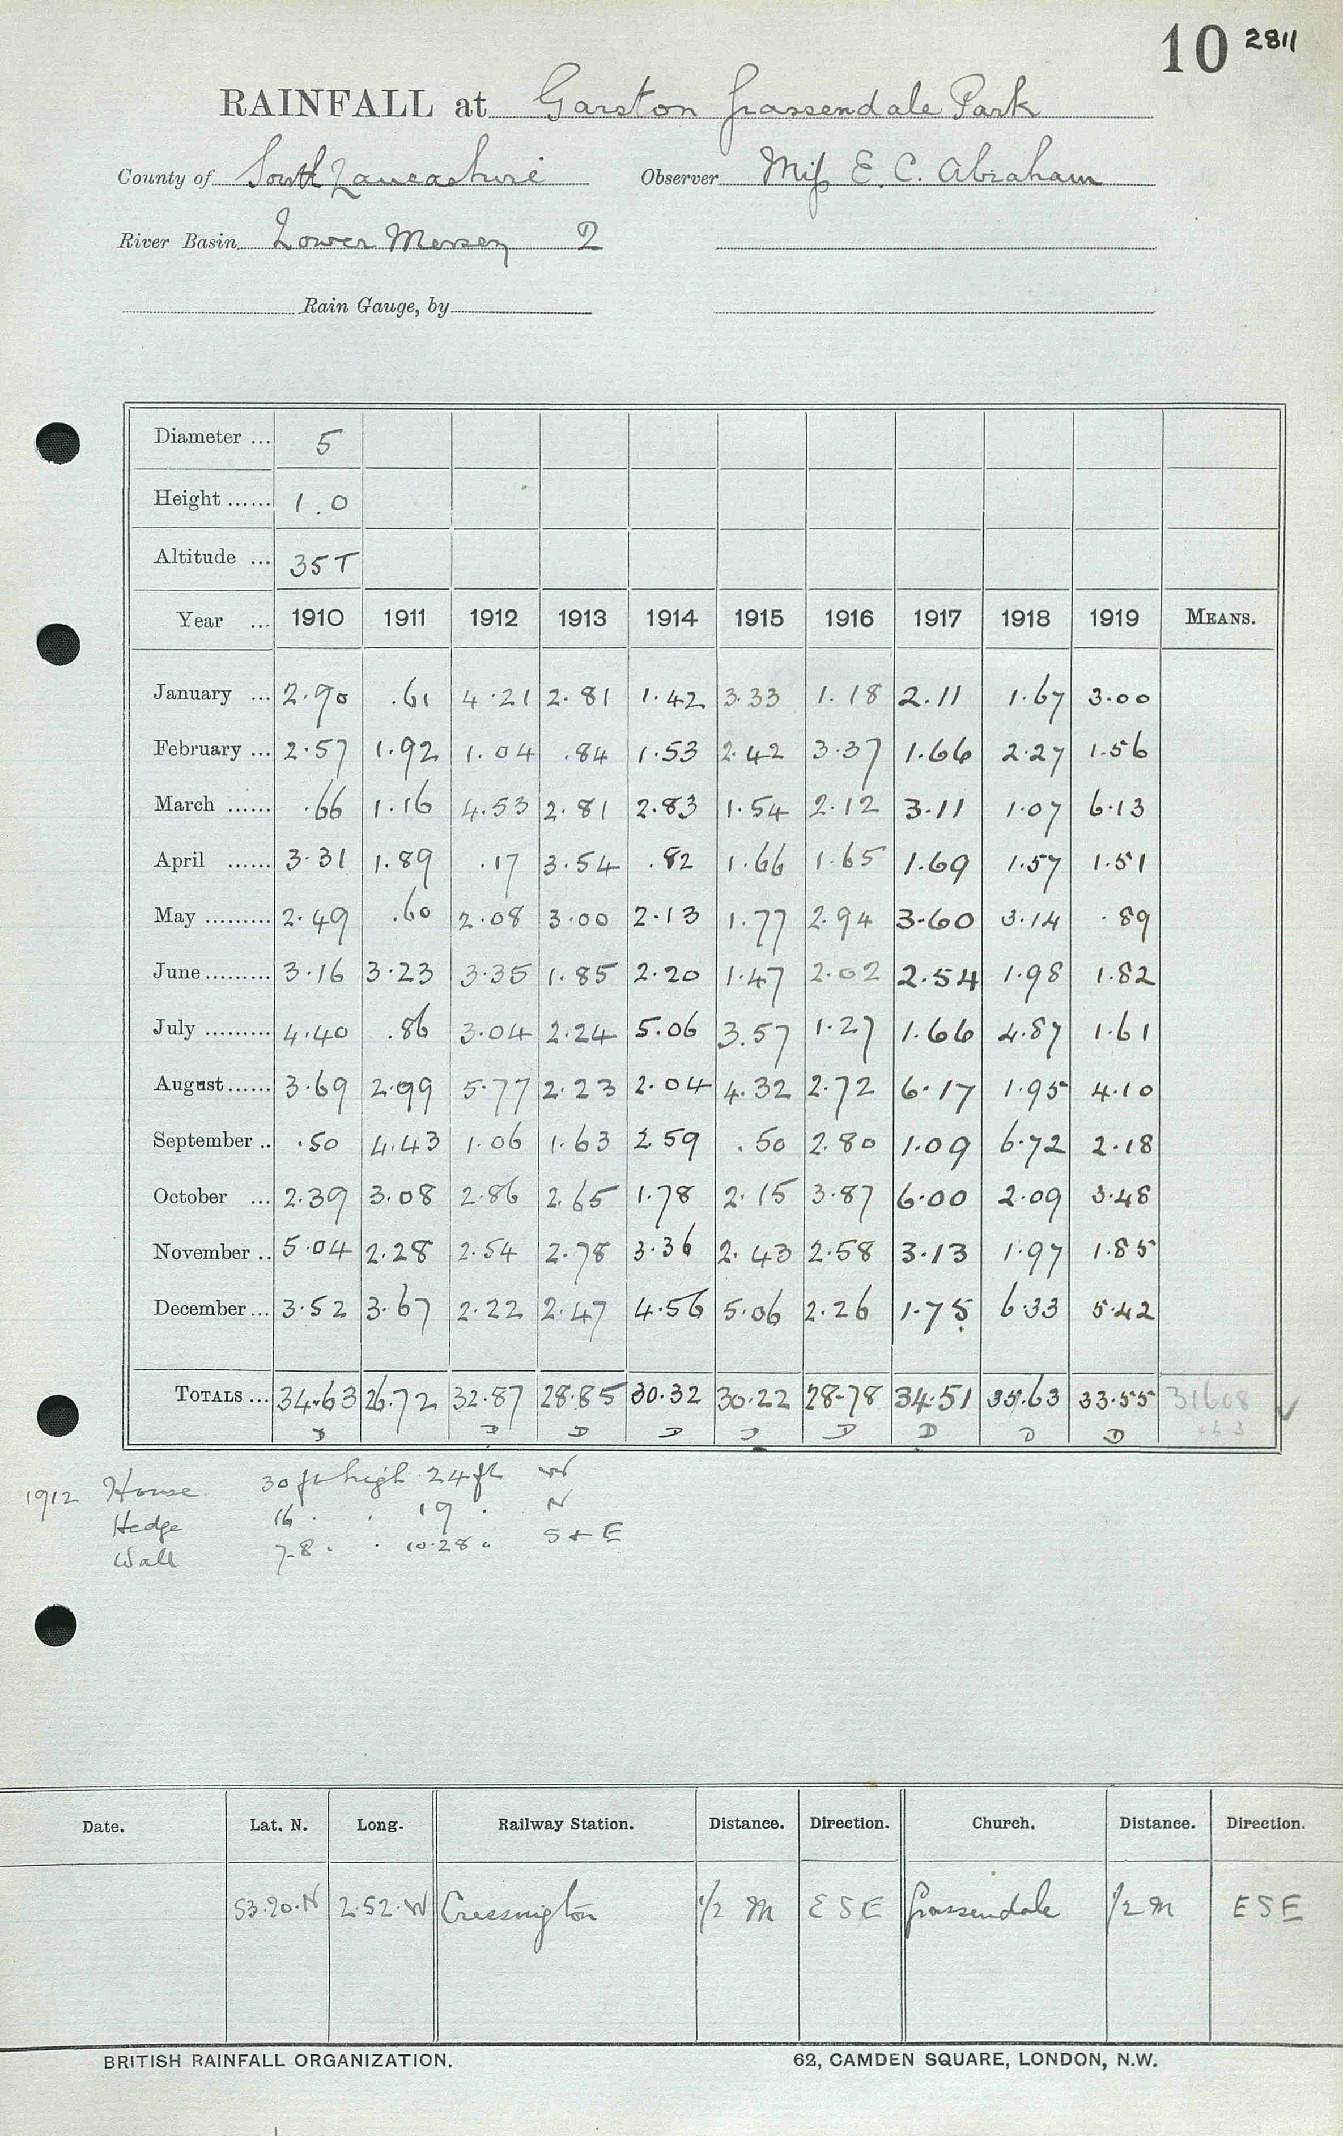 10 2811
RAINFALL at Garston Grassendale Park
County of South Lancashire Observer Miss E. C. Abraham
River Basin Lower Mersey 2
Rain Gauge, by
Diameter ... 5
Height ...... 1.0
Altitude ... 35 T
Year ... 1910 1911 1912 1913 1914 1915 1916 1917 1918 1919 MEANS.
January ... 2.90 .61 4.21 2.81 1.42 3.33 1.18 2.11 1.67 3.00
February ... 2.57 1.92 1.04 .84 1.53 2.42 3.37 1.66 2.27 1.56
March ...... .66 1.16 4.53 2.81 2.83 1.54 2.12 3.11 1.07 6.13
April ...... 3.31 1.89 .17 3.54 .82 1.66 1.65 1.69 1.57 1.51
May ......... 2.49 .60 2.08 3.00 2.13 1.77 2.94 3.60 3.14 .89
June ......... 3.16 3.23 3.35 1.85 2.20 1.47 2.02 2.54 1.98 1.82
July ......... 4.40 .86 3.04 2.24 5.06 3.57 1.27 1.66 4.87 1.61
August ...... 3.69 2.99 5.77 2.23 2.04 4.32 2.72 6.17 1.95 4.10
September .. .50 4.43 1.06 1.63 2.59 .50 2.80 1.09 6.72 2.18
October ... 2.39 3.08 2.86 2.65 1.78 2.15 3.87 6.00 2.09 3.48
November .. 5.04 2.28 2.54 2.78 3.36 2.43 2.58 3.13 1.97 1.85
December ... 3.52 3.67 2.22 2.47 4.56 5.06 2.26 1.75 6.33 5.42
TOTALS ... 34.63 26.72 32.87 28.85 30.32 30.22 28.78 34.51 35.63 33.55 31608 ✓
D D D D D D D D
1912 House 30 ft high 24 ft W
Hedge 16 . . 19 . N
Wall 7-8 . . 10.28 . S & E
Date. Lat. N. Long. Railway Station. Distance. Direction. Church. Distance. Direction.
53.20.N 2.52.W Cressington 1/2 M ESE Grassendale 1/2 M ESE
BRITISH RAINFALL ORGANIZATION. 62, CAMDEN SQUARE, LONDON, N.W.